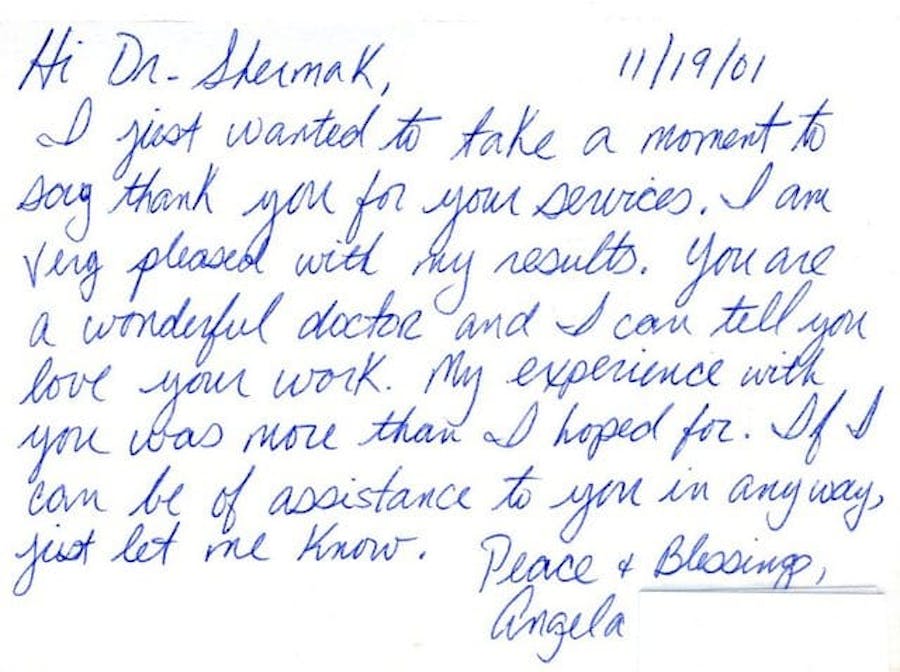 Hi Dr. Shermak, 11/19/01
I just wanted to take a moment to
say thank you for your services. I am
very pleased with my results. You are
a wonderful doctor and I can tell you
love your work. My experience with
you was more than I hoped for. If I
can be of assistance to you in any way,
just let me know.
Peace + Blessings,
Angela